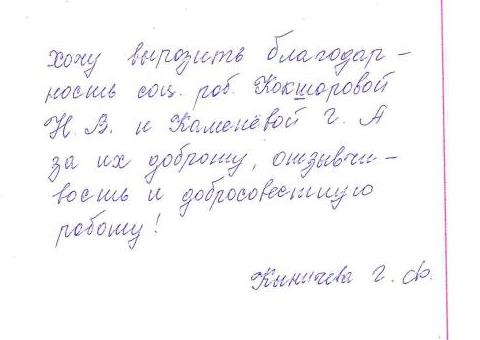 хочу вырозить благодар-
ность соц. роб. Кокшаровой
Н. В. и Каменёвой Г. А
за их доброту, отзывчи-
вость и добросовестную
работу!
Кыничева Г. Ф.